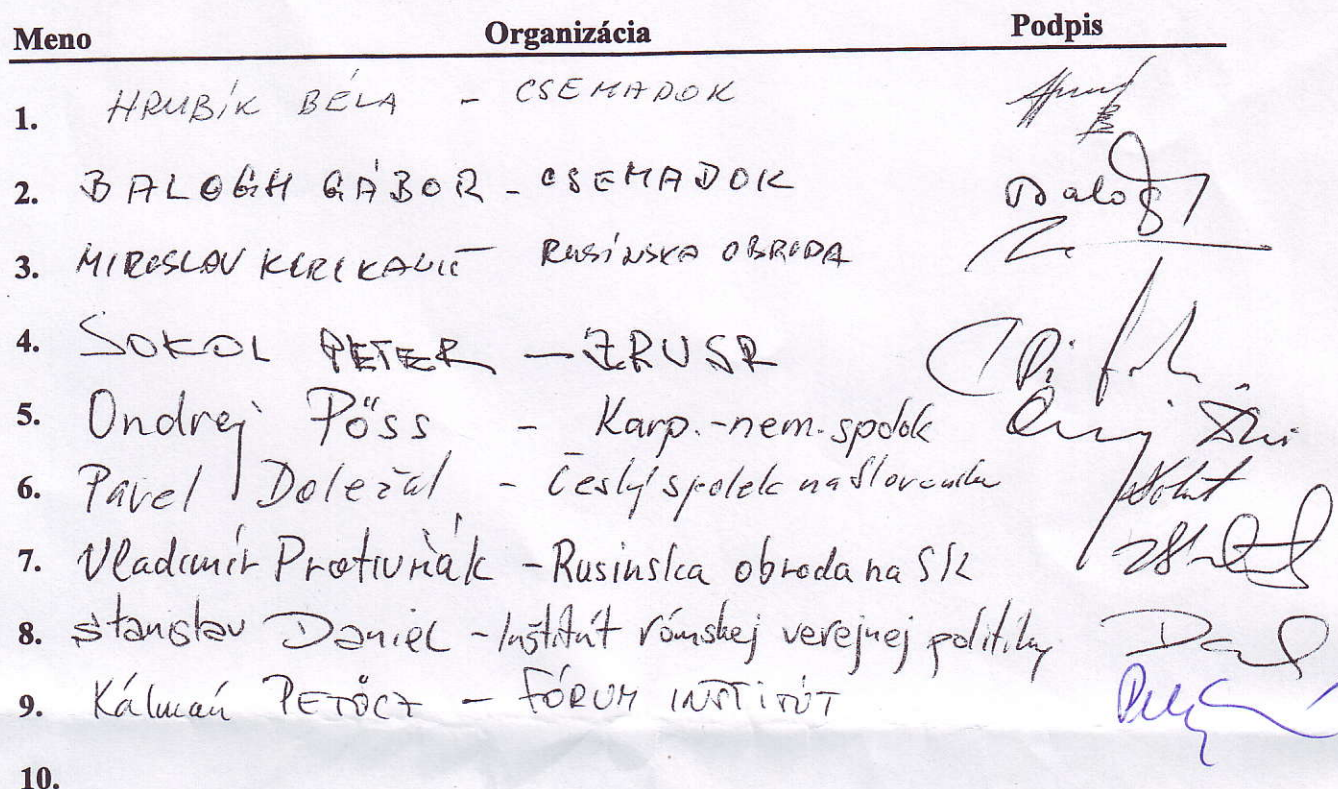 Meno Organizácia Podpis
1. HRUBÍK BÉLA - CSEMADOK
2. BALOGH GÁBOR - CSEMADOK Balogh
3. MIROSLAV KEREKANIČ RUSÍNSKA OBRODA
4. SOKOL PETER - ZRUSR
5. Ondrej Pöss - Karp.-nem. spolok
6. Pavel Doležal - Český spolek na Slovensku
7. Vladimír Protivňák - Rusínska obroda na SK
8. Stanislav Daniel - Inštitút rómskej verejnej politiky
9. Kálmán PETŐCZ - FÓRUM INŠTITÚT
10.